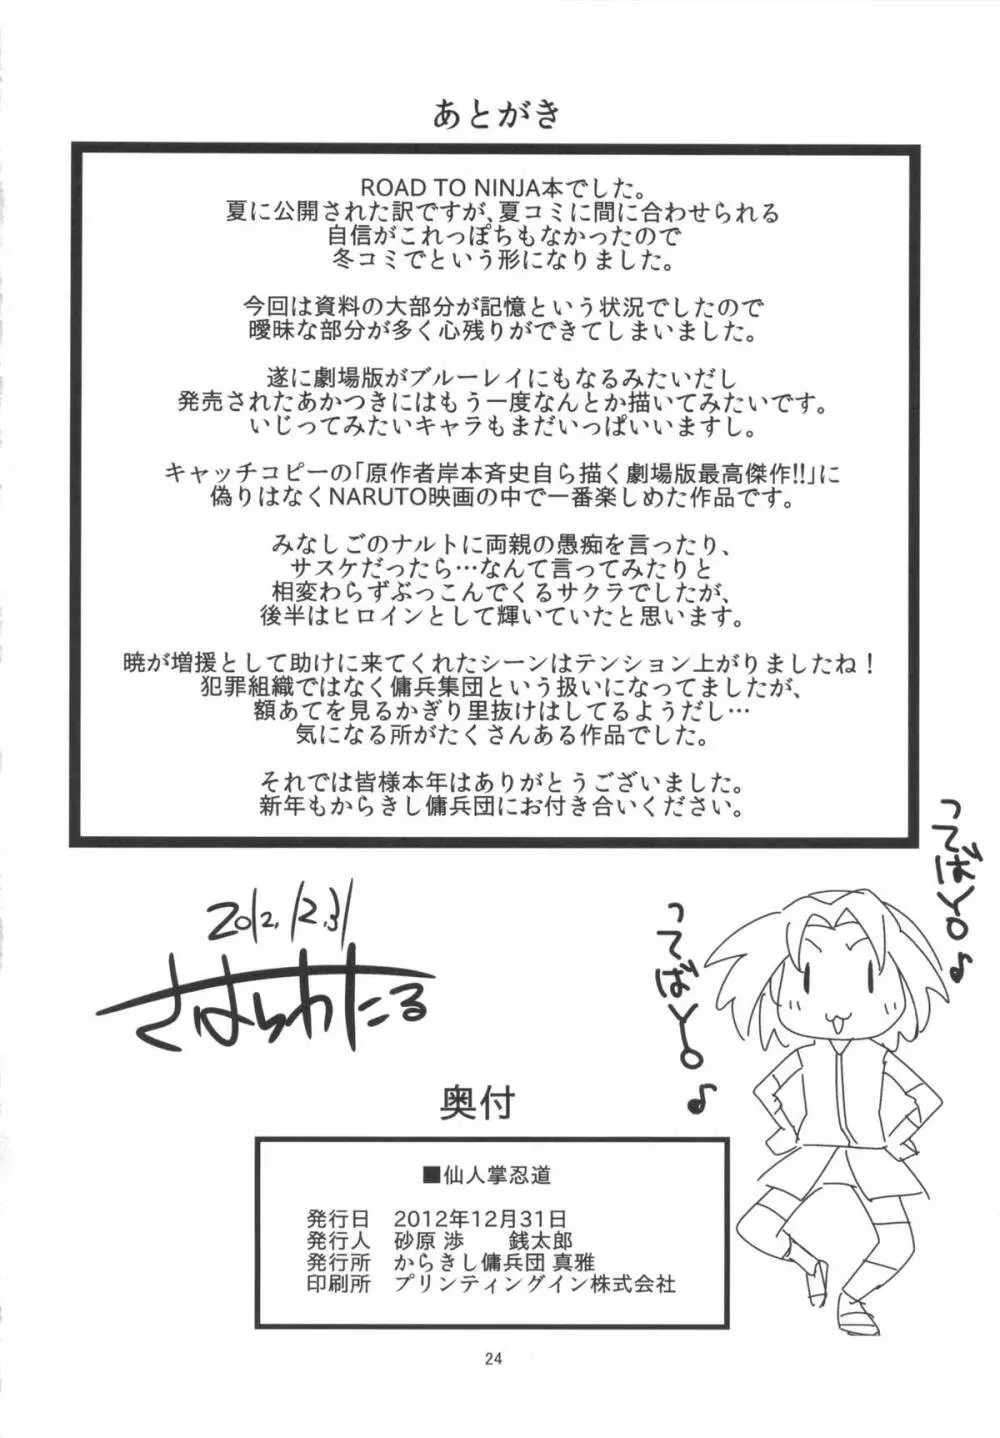 あとがき
ROAD TO NINJA本でした。
夏に公開された訳ですが、夏コミに間に合わせられる
自信がこれっぽちもなかったので
冬コミでという形になりました。
今回は資料の大部分が記憶という状況でしたので
曖昧な部分が多く心残りができてしまいました。
遂に劇場版がブルーレイにもなるみたいだし
発売されたあかつきにはもう一度なんとか描いてみたいです。
いじってみたいキャラもまだいっぱいいますし。
キャッチコピーの「原作者岸本斉史自ら描く劇場版最高傑作!!」に
偽りはなくNARUTO映画の中で一番楽しめた作品です。
みなしごのナルトに両親の愚痴を言ったり、
サスケだったら…なんて言ってみたりと
相変わらずぶっこんでくるサクラでしたが、
後半はヒロインとして輝いていたと思います。
暁が増援として助けに来てくれたシーンはテンション上がりましたね!
犯罪組織ではなく傭兵集団という扱いになってましたが、
額あてを見るかぎり里抜けはしてるようだし…
気になる所がたくさんある作品でした。
それでは皆様本年はありがとうございました。
新年もからきし傭兵団にお付き合いください。
ってばYO♪
ってばYO♪
2012.12.31
さはらわたる
奥付
■仙人掌忍道
発行日 2012年12月31日
発行人 砂原 渉 銭太郎
発行所 からきし傭兵団 真雅
印刷所 プリンティングイン株式会社
24